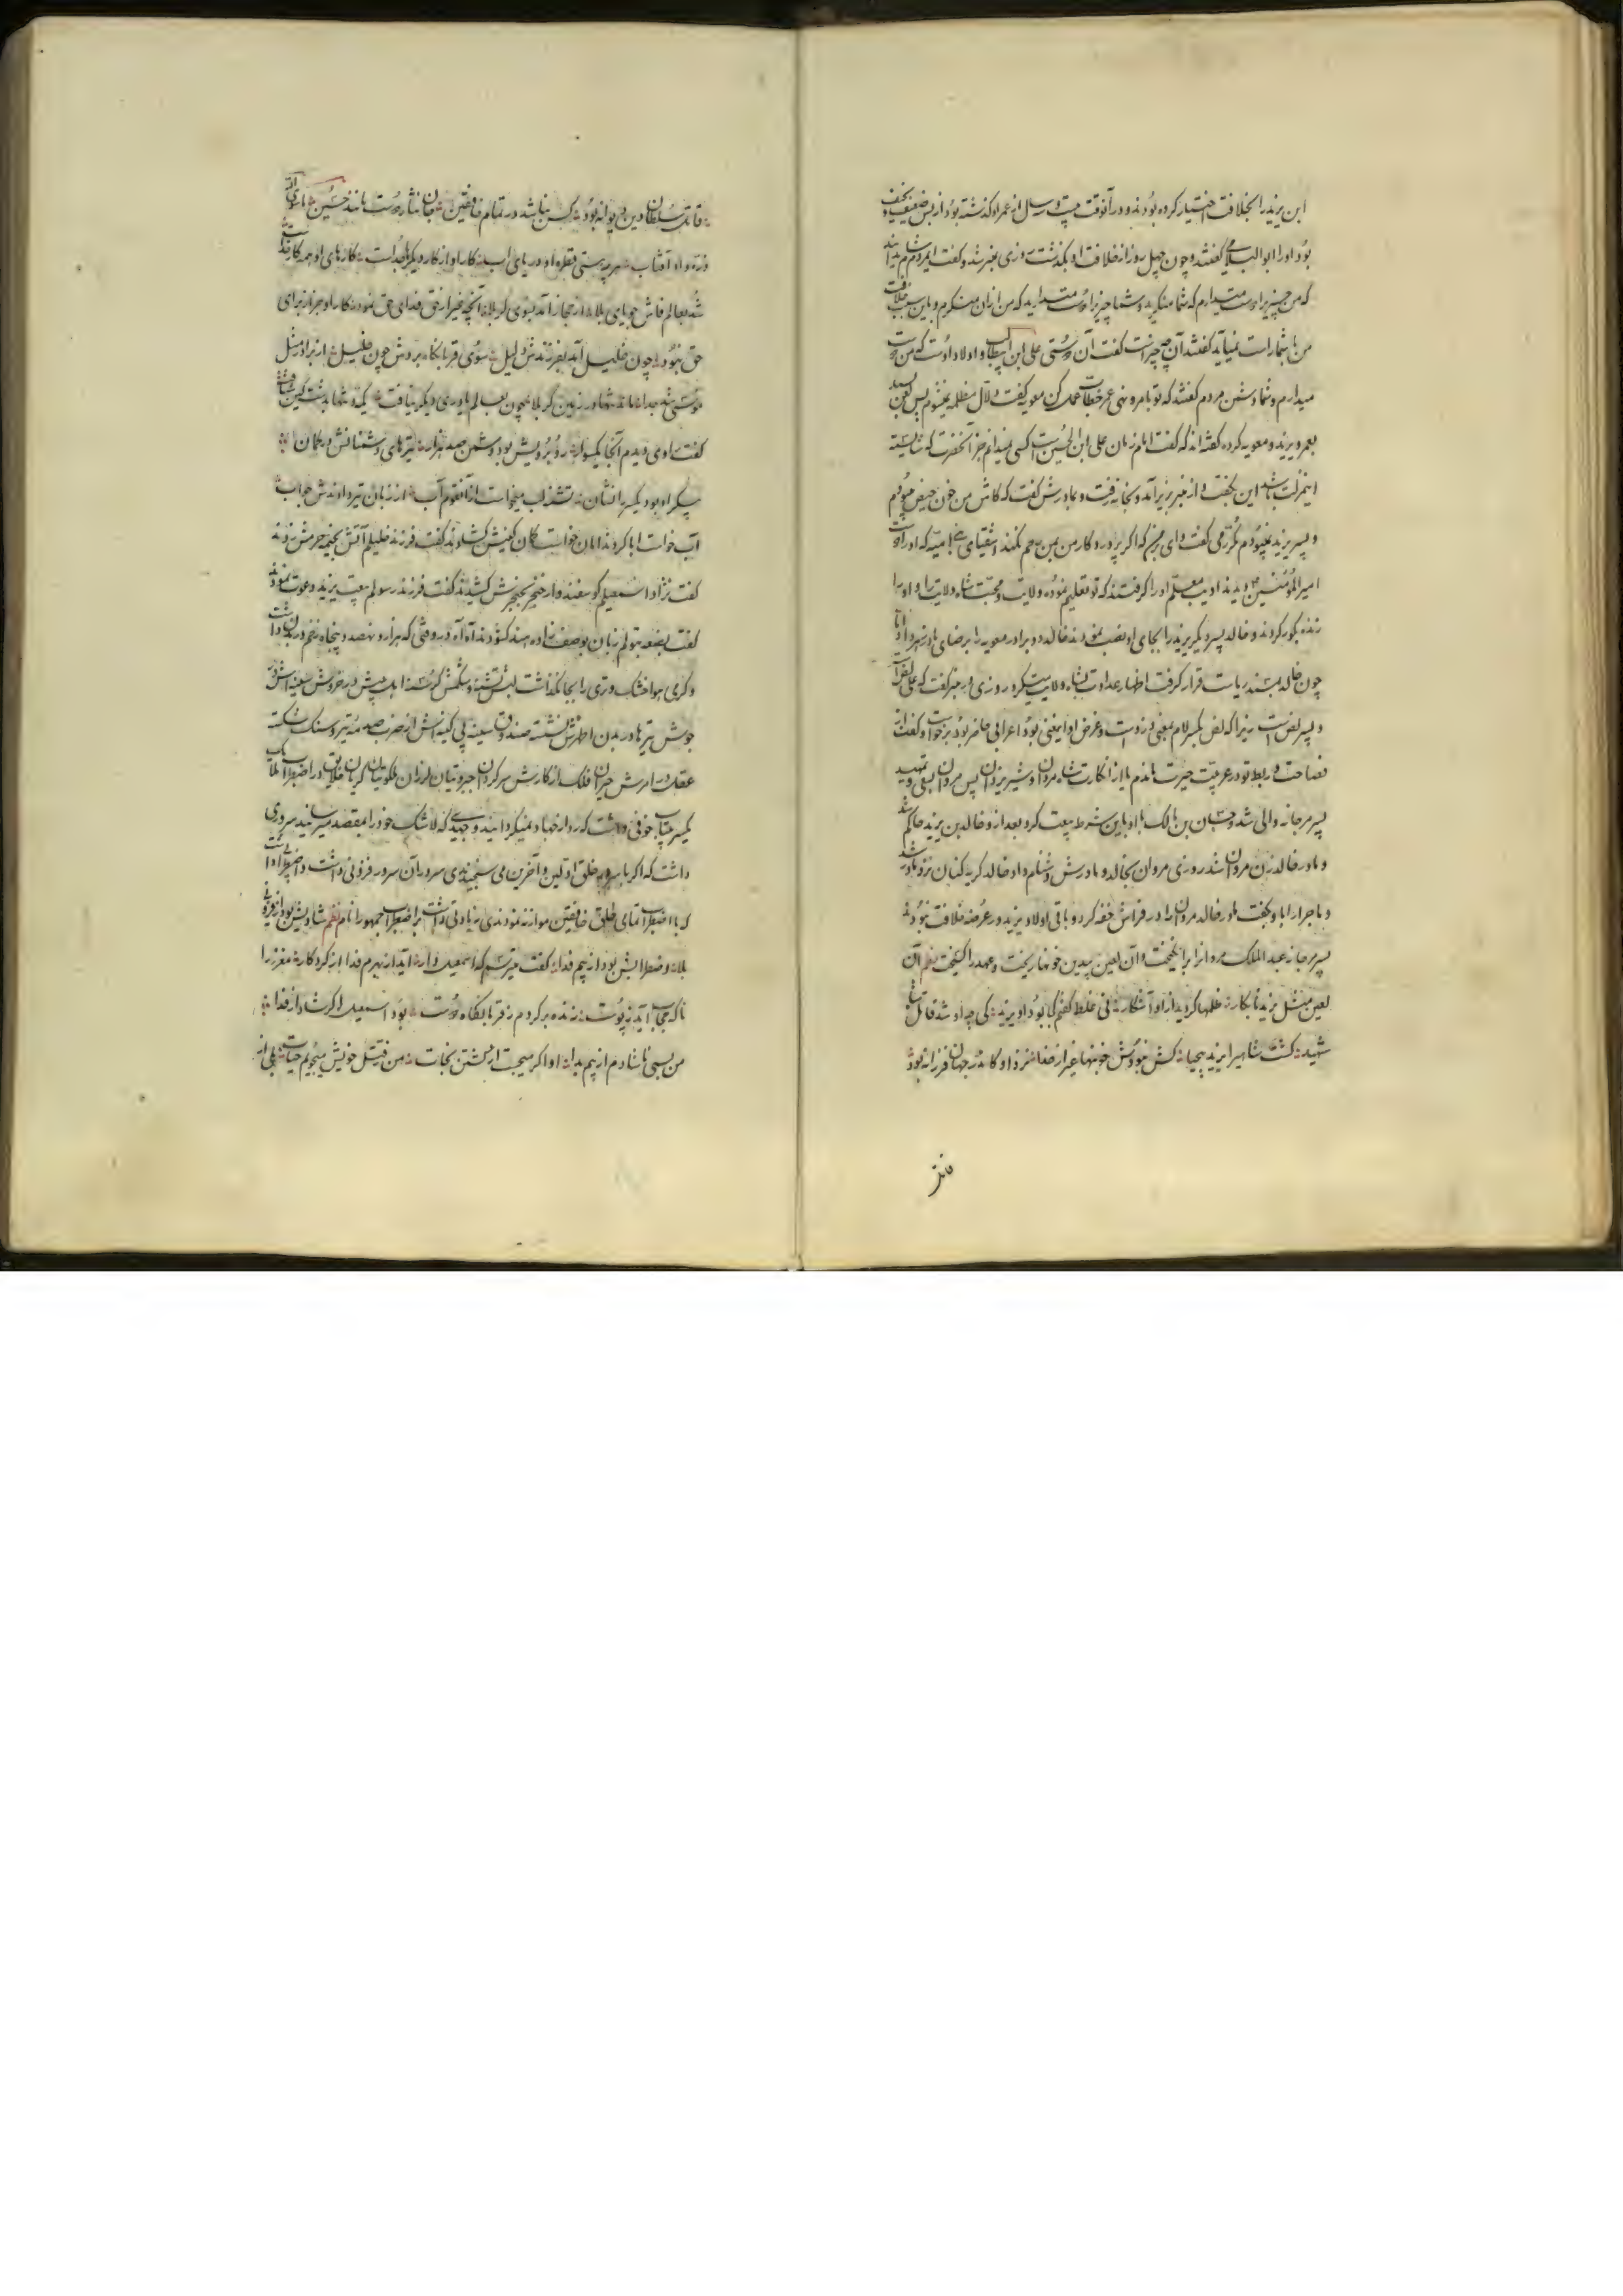 ابن یزید را بخلافت اختیار کرده بودند و در آنوقت بیست و سال از عمر او گذشته بود از بس ضعیف و نحیف
بود او را ابو اللیلی گفتند و چون چهل روز از خلافت او بگذشت روزی بمنبر شد و گفت ایمردم
که من چیزیرا دوست میدارم که شما منکرید و شما چیزیرا دوست میدارید که من از آن منکرم و باین سبب خلافت
من با شما راست نمیآید گفتند آن چه چیز است گفت آن دوستی علی ابن ابیطالب و اولاد اوست که من دوست
میدارم و شما دشمن مردم گفتند که تو بامر و نهی عمر خطاب عمل کن معویه گفت دلال مظلمه نمیشوم پس لعن
بعمر و یزید و معویه کرده گفته اند که گفت امام زمان علی ابن الحسین است کسی نمیدانم جز آنحضرت که شایسته
اینمرات باشد این بگفت و از منبر بزیر آمد و بخانه رفت و مادرش گفت که کاش من خون حیض میبودم
و پسر یزید نمیبودم مکرر می گفت وای بر من که اگر پروردگار من بمن رحم نکند اشقیای بنی امیه که او را دوست
امیر المؤمنین دیدند ادیب معلم او را گرفتند که تو تعلیم نموده ولایت و محبت شاه ولایت را و او را
زنده بگور کردند و خالد پسر دیگر یزید را بجای او نصب نمودند خالد دو برادر معویه را برضای مادر زهر داد اما
چون خالد بمسند ریاست قرار گرفت اظهار عداوت شاه ولایت میکرد روزی در منبر گفت که علی لص است
و پسر لص است زیرا که لص بکسر لام بمعنی دزد است و غرض او اینمعنی بود اعرابی حاضر بود برخواست و گفت از
فصاحت و ربط تو در عربیت حیرت ماندم یا از انکارت شاه مردان و شیر یزدان پس مروان بسعی و تمهید
پسر مرجانه والی شد و حسان بن مالک با او باین شرط بیعت کرد بعد از او خالد بن یزید حاکم شد
و مادر خالد زن مروان شد روزی مروان بخالد و مادرش دشنام داد خالد گریه کنان نزد مادر شد
و ماجرا را باو بگفت مادر خالد مروان را در فراش خفه کرد و باقی اولاد یزید در عرصه خلافت نبودند
پسر مرجانه عبد الملک مروان را برانگیخت و آن لعین بیدین خونها ریخت و عهد را گسیخت نظم آن
لعین مثل یزید نابکار ظلمها گردید از او آشکار نی غلط گفتم کجا بود او یزید کی چو او شد قاتل شاه
شهید کشت شاهیرا یزید بیحیا کش نبودش خونبها غیر از خدا مزد او کاندر جهان فرزانه بود
قاتل سلطان دین دیوانه بود کس نباشد در تمام خافقین جان نثار دوست مانند حسین ماسوی الله
ذره و او آفتاب هر پرستی قطره او دریای آب کار او از کار دیگرها جداست کارهای او همه کار خداست
شد بعالم فاش جویای بلا از حجاز آمد بسوی کربلا آنچه غیر از حق فدای حق نمود کار او جز از برای
حق نبود چون خلیل آمد بفرزندش دلیل سوی قربانگاه بردش چون خلیل از برادر مثل
موسی شد جدا ماند تنها در زمین کربلا چون بعالم یاوری دیگر نیافت یکه و تنها بدشت کین شتافت
گفت راوی دیدم آنجا یکسوار روبرویش بود دشمن صد هزار تیرهای دشمنانش در کمان
پیکر او بود یکسر را نشان تشنه لب میخواست از آنقوم آب از زبان تیر دادندش جواب
آب خواست ابا کردند امان خواست کمان کینش کشادند گفت فرزند خلیلم آتش بخیمه حرمش زدند
گفت نژاد اسمعیلم گوسفندوار خنجر بحنجرش کشیدند گفت فرزند رسولم ببیعت یزید دعوت نمودند
گفت بضعه بتولم زبان بوصف زاده هند گشودند آه آه در وقتی که هزار و نهصد و پنجاه زخم در بدن داشت
و گرمی هوا خشک و تری را بجا نگذاشت لبش تشنه و شکمش گرسنه اهل بیتش در خروش سینه اش در
جوش تیرها در بدن اطهرش نشسته صندوق سینه بی کینه اش از ضرب صدمه تیر و سنگ شکسته
عقل در امرش حیران فلک از کارش سرگردان جبروتیان لرزان ملکوتیان گریان خلایق در اضطراب
یکسر بیتاب خوفی داشت که رو از جهاد نمیگردانید و جهدی که لاشک خود را بمقصد میرسانید سروری
داشت که اگر با سرور خلق اولین و آخرین می سنجیدندی سرور آن سرور فزونی داشت و اضطراب داشت
که با اضطراب تمامی خلق خافقین موازنه نمودندی زیادتی داشت بر اضطراب جمهور انام نظم شادیش بود از
بلا و اضطرابش بود از بیم فدا گفت میترسم که اسمعیل وار آید از بهرم فدا از کردگار مغز را
ناگه حجاب آید ز پوست زنده برگردم ز قربانگاه دوست بود اسمعیل اگر شاد از فدا
من بسی ناشادم از بیم بدا او اگر میجست از کشتن نجات من ز قتل خویش میجویم حیات بلی از